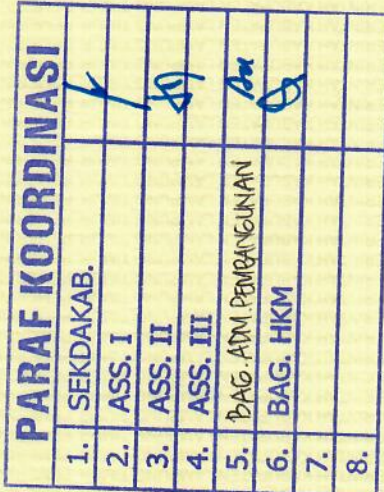 PARAF KOORDINASI
1. SEKDAKAB.
2. ASS. I
3. ASS. II
4. ASS. III
5. BAG. ADM. PEMBANGUNAN
6. BAG. HKM
7.
8.